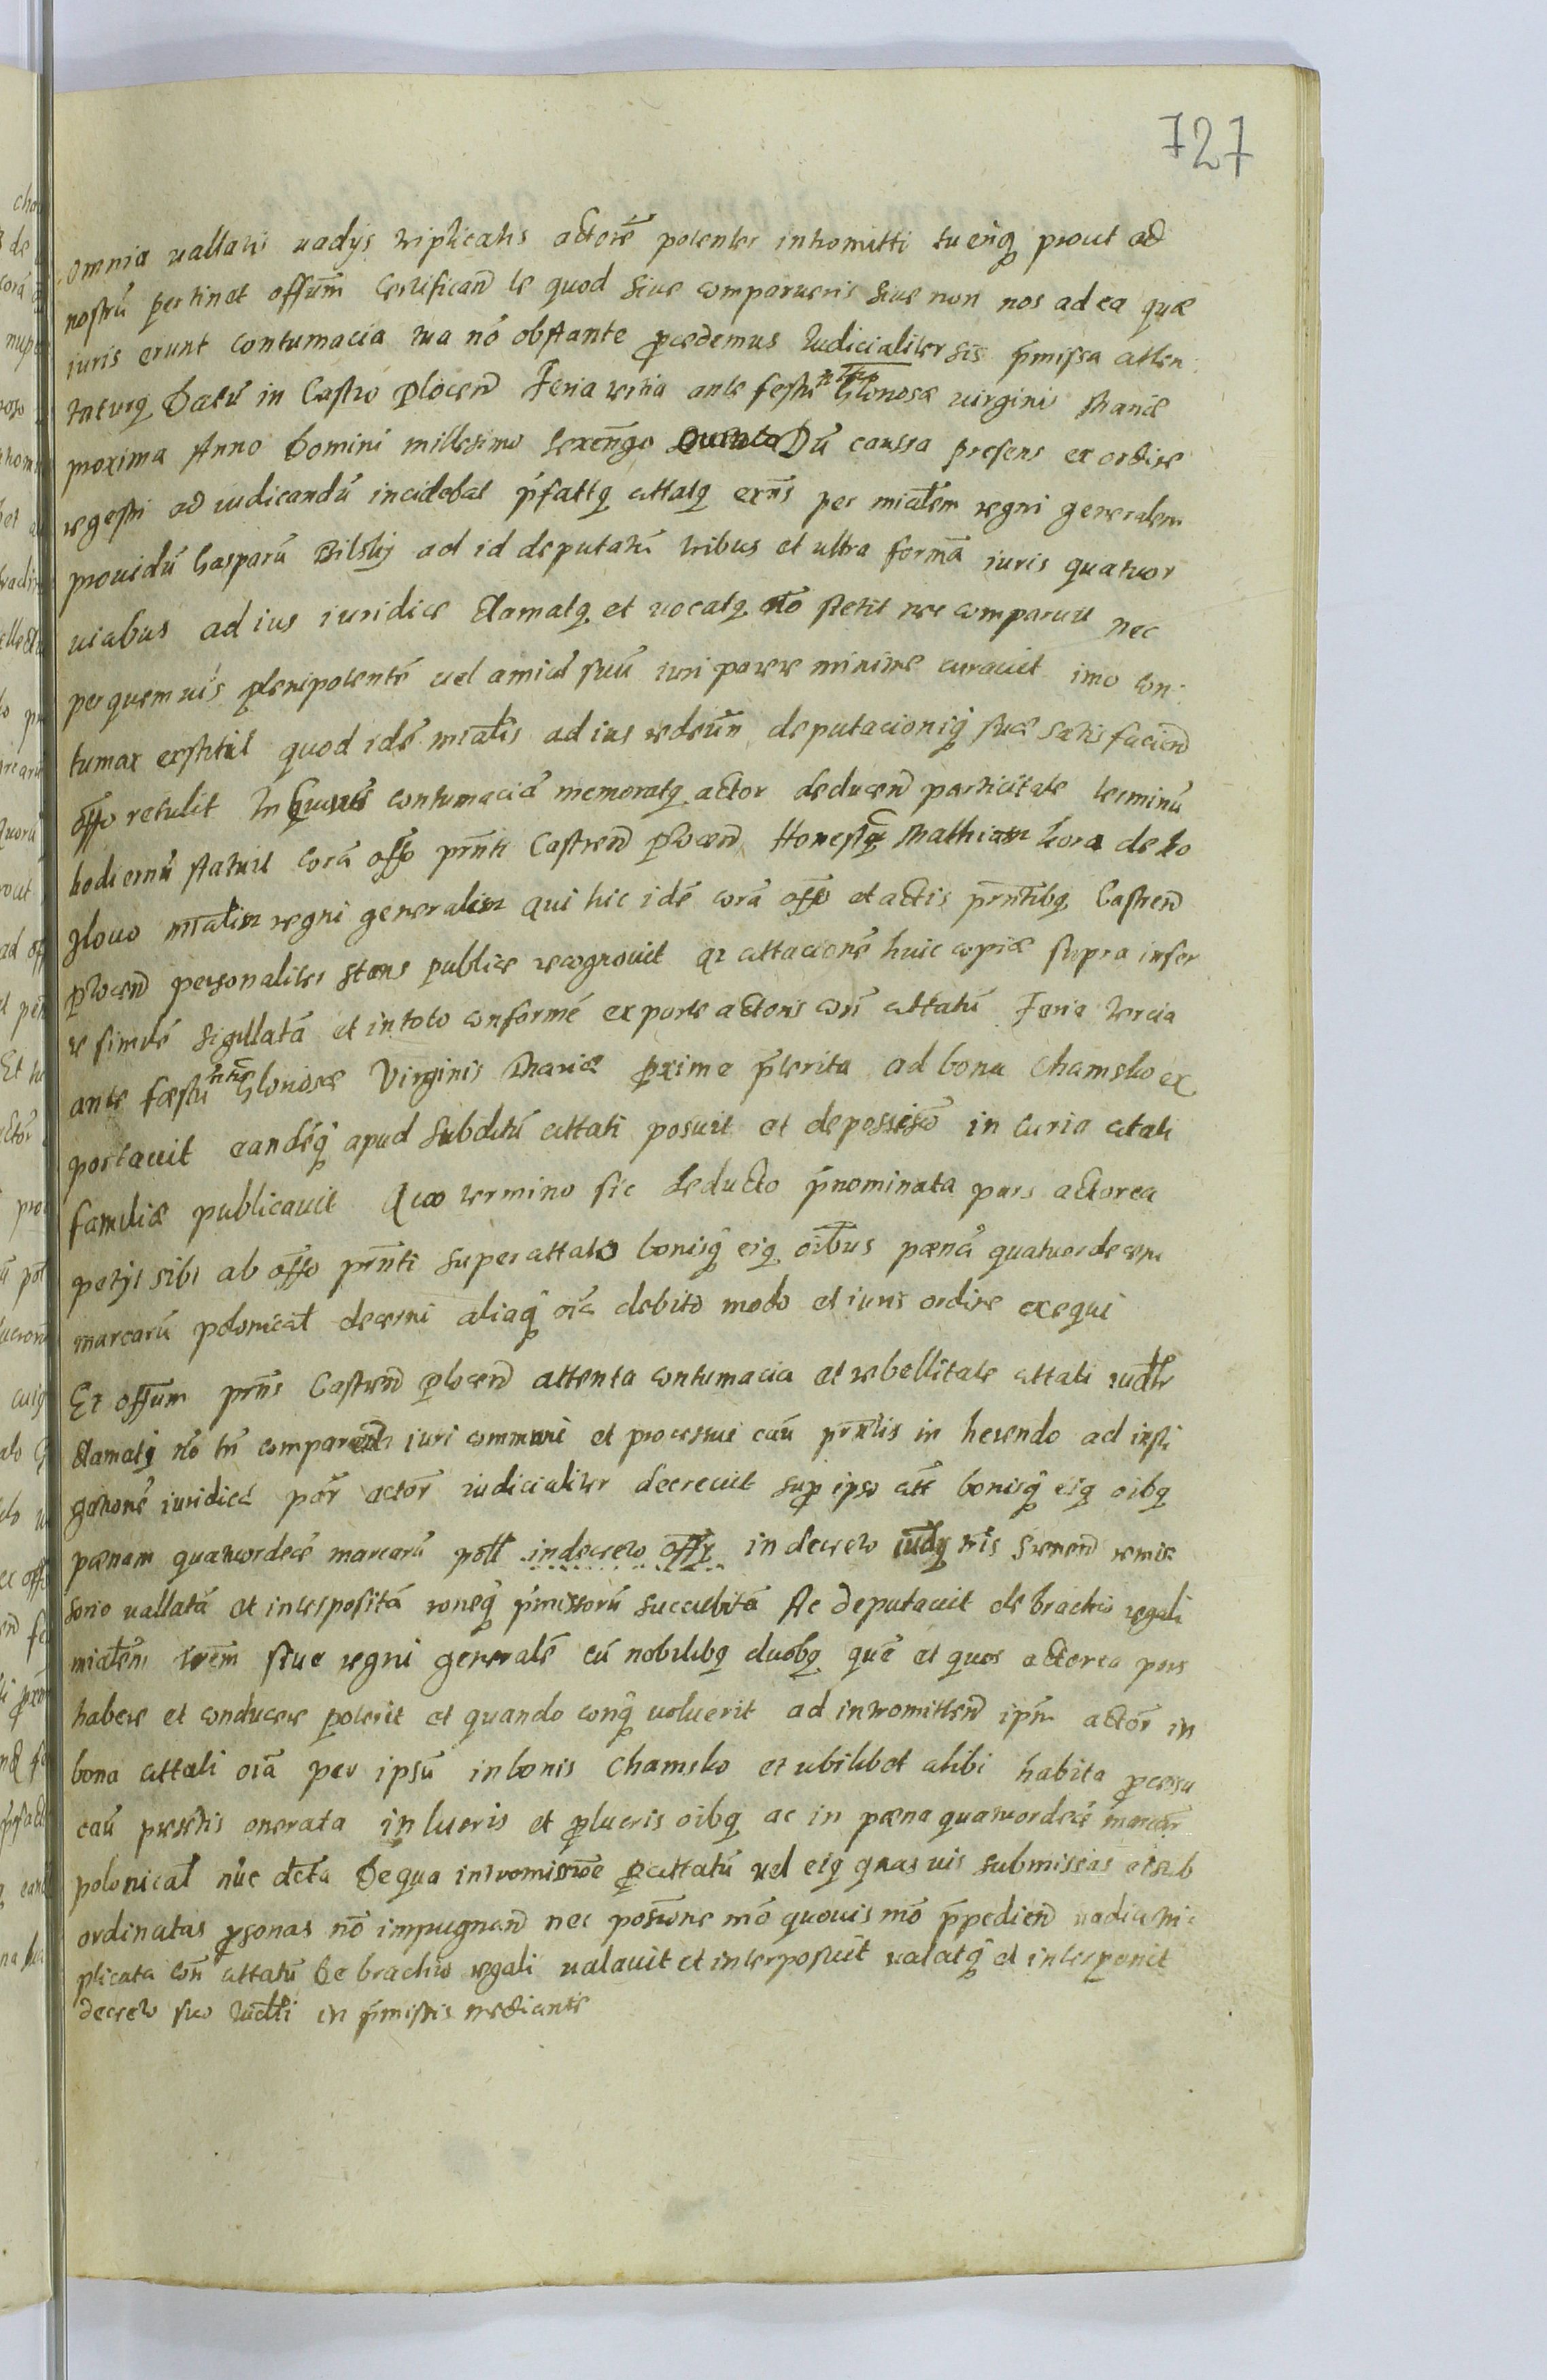 727
omnia vallatis vadijs triplicatis actorē potenter intromitti tueriq3 prout ad
nostrū pertinet offūm Certifican̄ te quod siue comparueris siue non nos ad ea quæ
iuris erunt contumacia tua nō obstante p̄cedemus Iudicialiter sis p̄missa atten
taturq3 Datū in Castro ploceñ Feria tertia ante festū Gloriosæ virginis Mariæ
proxima Anno Domini millesimo sexcēn̄go Quinto Dū caussa presens ex ordine
regestri ad iudicandū incidebat p̄fatt9 cittat9 exn̄s per miālem regni generalem
prouidū Gasparū Bilskij ad id deputatū tribus et ultra formā iuris quatuor
uicibus ad ius iuridice clamat9 et uocat9 nō stetit nec comparuit nec
per quemuis plenipotentē uel amicū suū iuri parere minime curauit imo con
tumax exstitit quod idē miālis ad ius redeun̄ deputacioniq3 suæ satisfacien̄
offo retulit In cuius contumaciā memorat9 actor deducen̄ particitate terminū
hodiernū statuit corā offo pn̄ti Castren̄ plocen̄ Honestū Mathiam kora de ko
zlouo miālem regni generalem qui hic idē corā offo et actis pn̄tibq3 Castren̄
plocen̄ personaliter stans publice recognouit q2 cittacionē huic copiæ supra inser
te similē sigillatā et in toto conformē ex parte actoris con̄ cittatū Feria tercia
ante fæstū Gloriosæ Virginis Mariæ p̄xime p̄terita ad bona Chamsko ex
portauit eandēq3 apud subditū cittati posuit et de possessio in curia citati
familiæ publicauit Quo termino sic deducto p̄nominata pars actorea
petijt sibi ab offo pn̄ti super cittato bonisq3 ei9 oībus pænā quatuordecem
marcarū polonical decerni aliaq3 oīa debito modo et iuris ordine exequi
Et offūm pn̄s Castren̄ plocen̄ attenta contumacia et rebellitate cittati iudlr
clamati nō tn̄ comparentis iuri communi et processui cāu pn̄tis in herendo ad insti
gationē iuridicā par̄ actor̄ iudicialiter decreuit sup ipso citt bonisq3 ei9 oibq3
pænam quatuordecē marcarū poll in decreto offij in decreto iudij nr̄is remis
sorio vallatā et interpositā roneq3 p̄missorū succubitā Ac deputauit de brachio regali
miālem trēm siue regni generalē cū nobilibq3 duobq3 quē et quos actorea pars
habere et conducere poterit et quando conq3 uoluerit ad intromitten̄ ipm̄ actor̄ in
bona cittati oīa per ipsū in bonis Chamsko et ubilibet alibi habita p̄cessu
cāu presentis onerata in lucris et p̄lucris oibq3 ac in pæna quatuordecē marcar̄
polonical nūc dcta De qua intromissione p̄ cittatū uel ei9 quasuis submissas et sub
ordinatas p̄sonas nō impugnan̄ nec possione mō quouis mō p̄pedien̄ vadia tri
plicata con̄ cittatū de brachio regali valauit et interposuit valatq3 et interponit
decreto suo Iudlli in p̄missis mediante